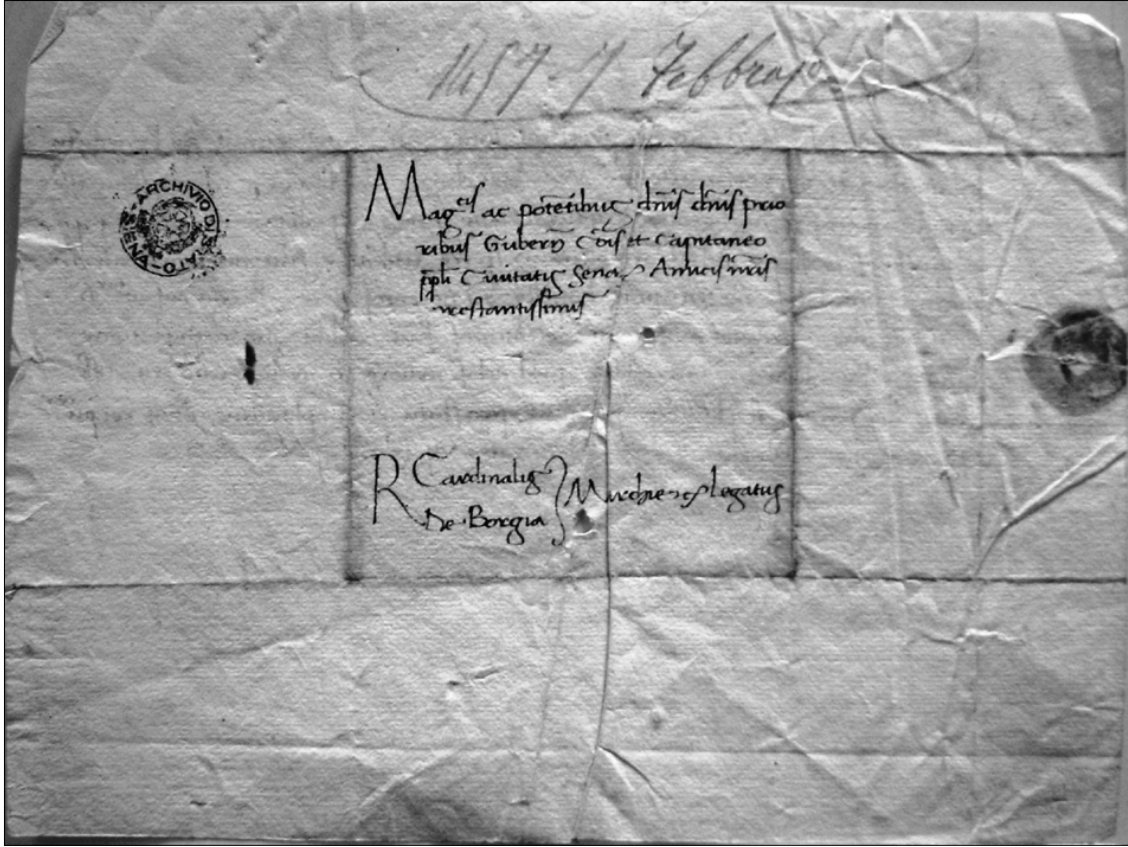 1457. 7 Febbrajo
ARCHIVIO DI STATO - SIENA -
Mag.cis ac potētibus dn̄is dn̄is prio
ribus Gubern̄ Cōis et Capitaneo
ppli Civitatis Senaꝝ Amicis nr̄is
prestantissimis
R Cardinalis
de Borgia
Marchie ꝛc legatus